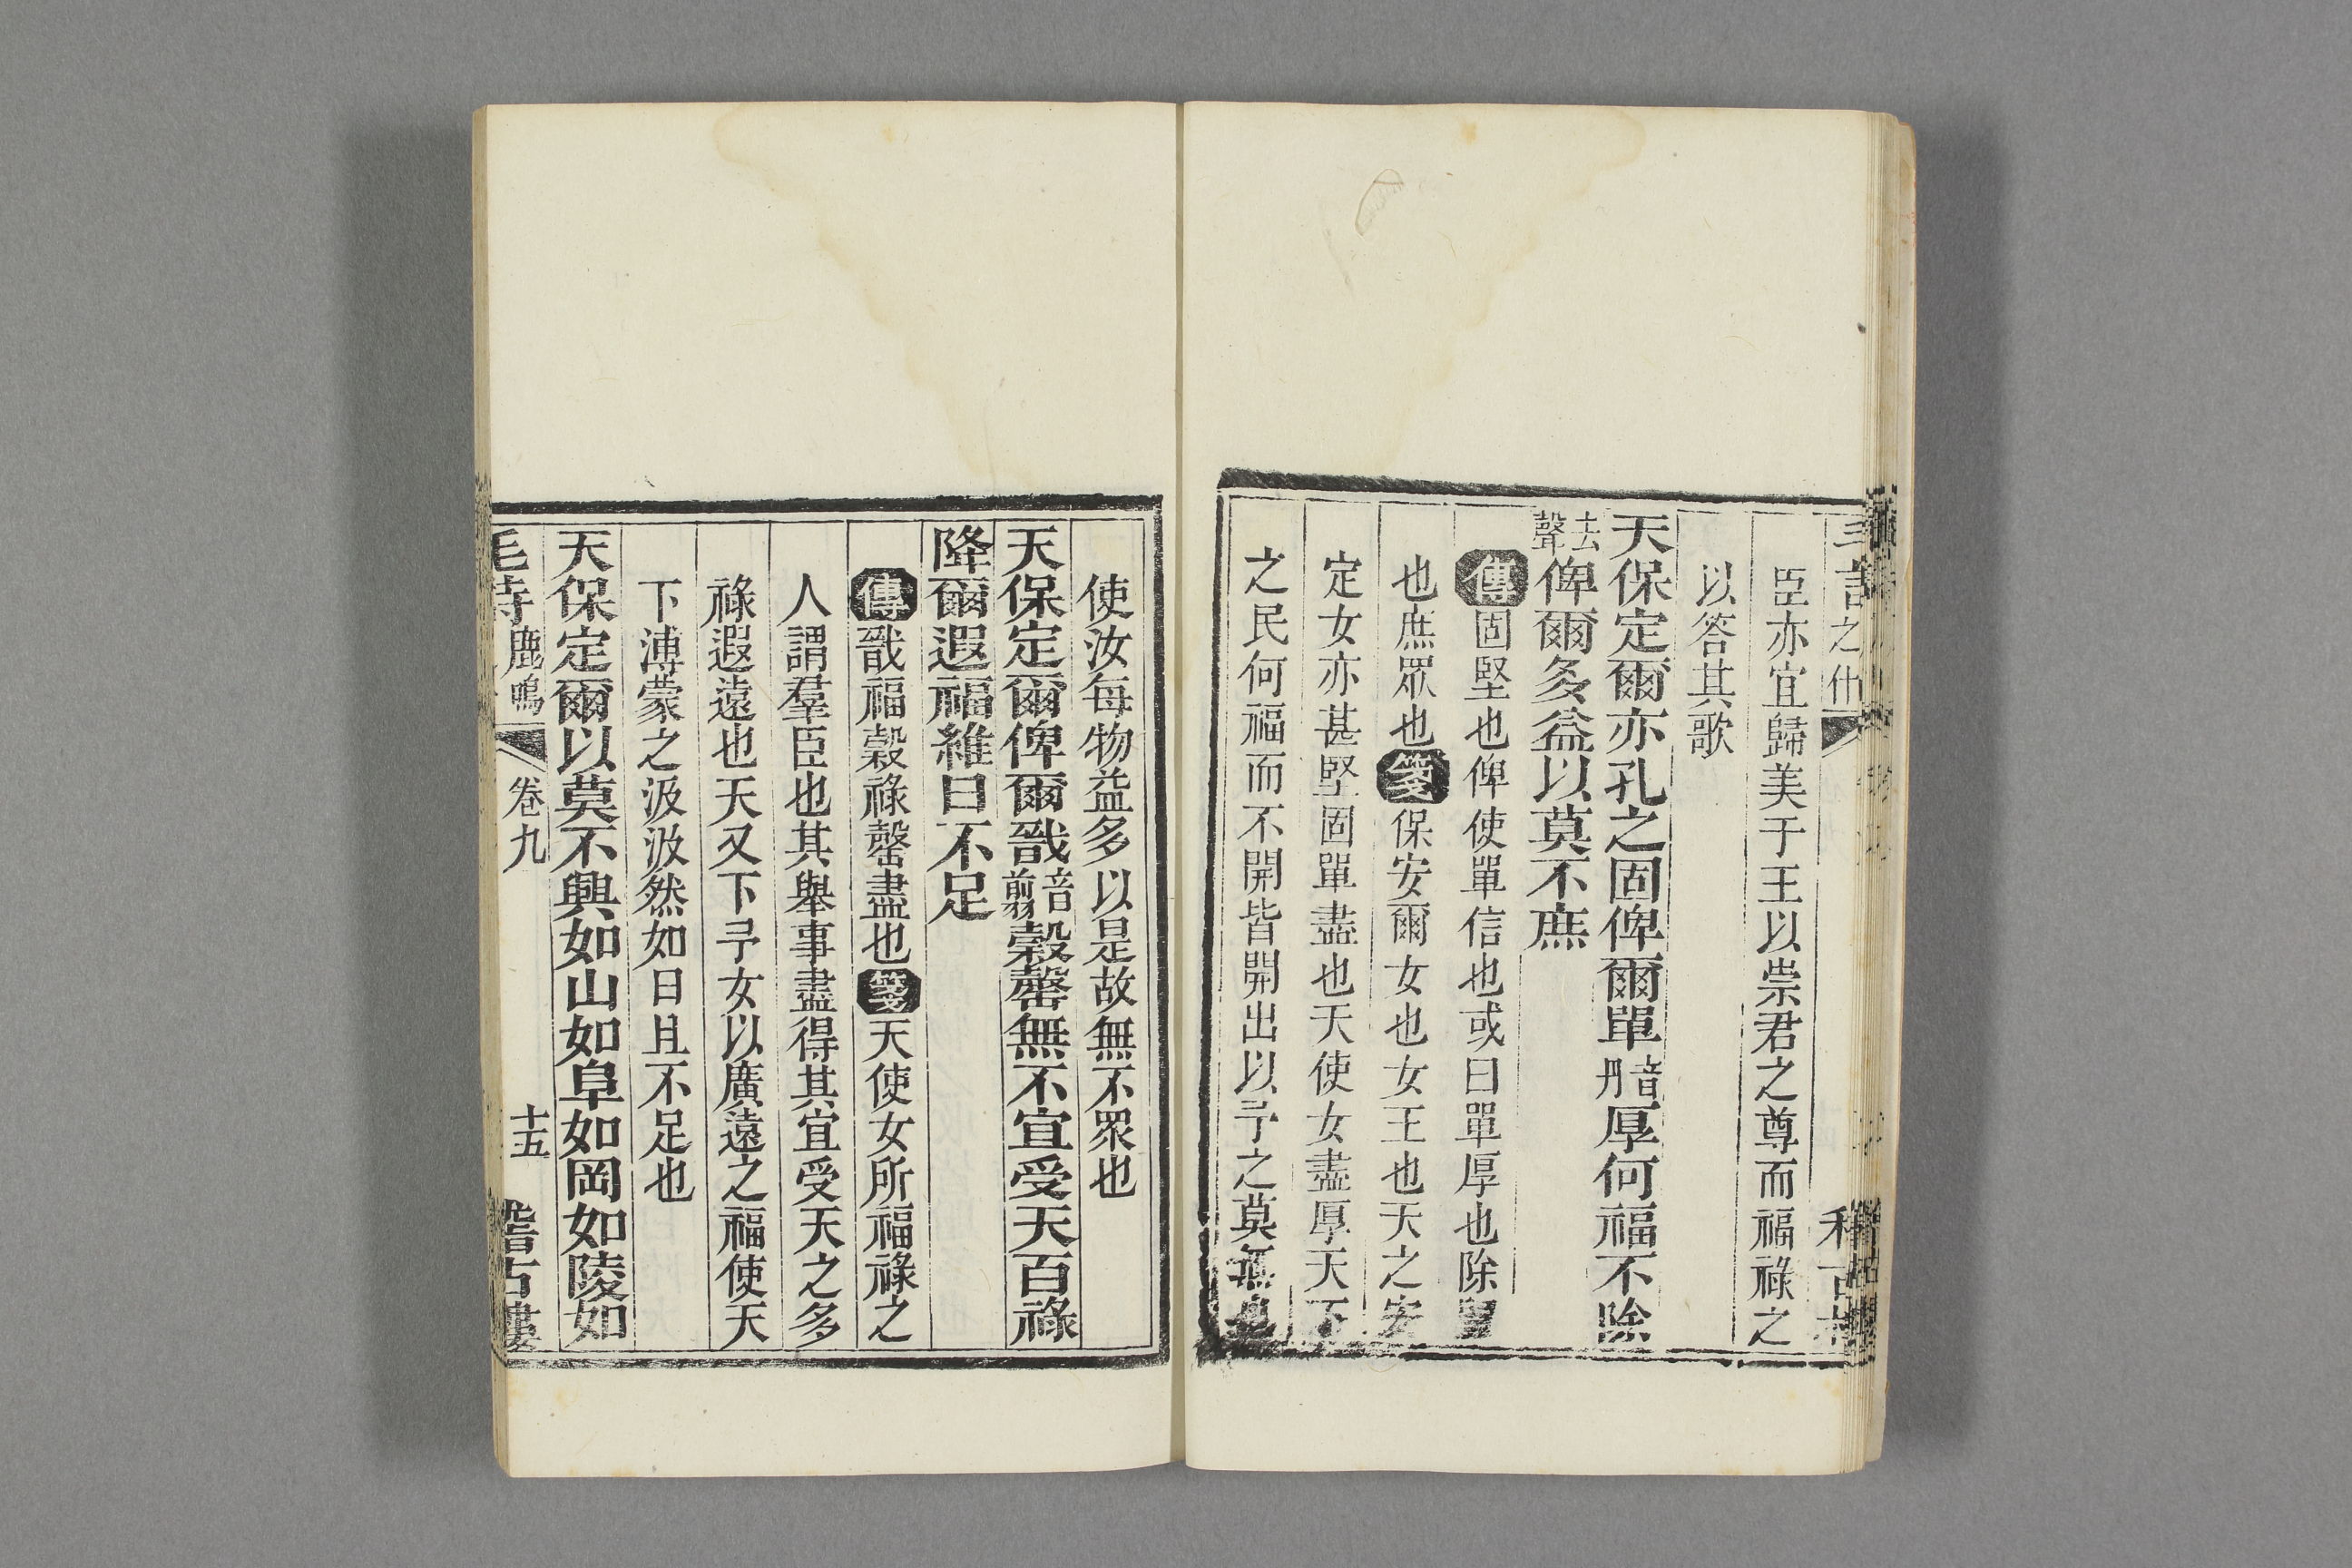 臣亦宜歸美于王以崇君之尊而福祿之
以答其歌
天保定爾亦孔之固俾爾單音丹厚何福不除
去聲俾爾多益以莫不庶
傳固堅也俾使單信也或曰單厚也除
也庶眾也箋保安爾女也女王也天之安
定女亦甚堅固單盡也天使女盡厚天下
之民何福而不開皆開出以予之莫無也
使汝每物益多以是故無不眾也
天保定爾俾爾戩音翦穀罄無不宜受天百祿
降爾遐福維日不足
傳戩福穀祿罄盡也箋天使女所福祿之
人謂羣臣也其舉事盡得其宜受天之多
祿遐遠也天又下予女以廣遠之福使天
下溥蒙之汲汲然如日且不足也
天保定爾以莫不興如山如阜如岡如陵如
毛詩鹿鳴 卷九 十五 稽古樓